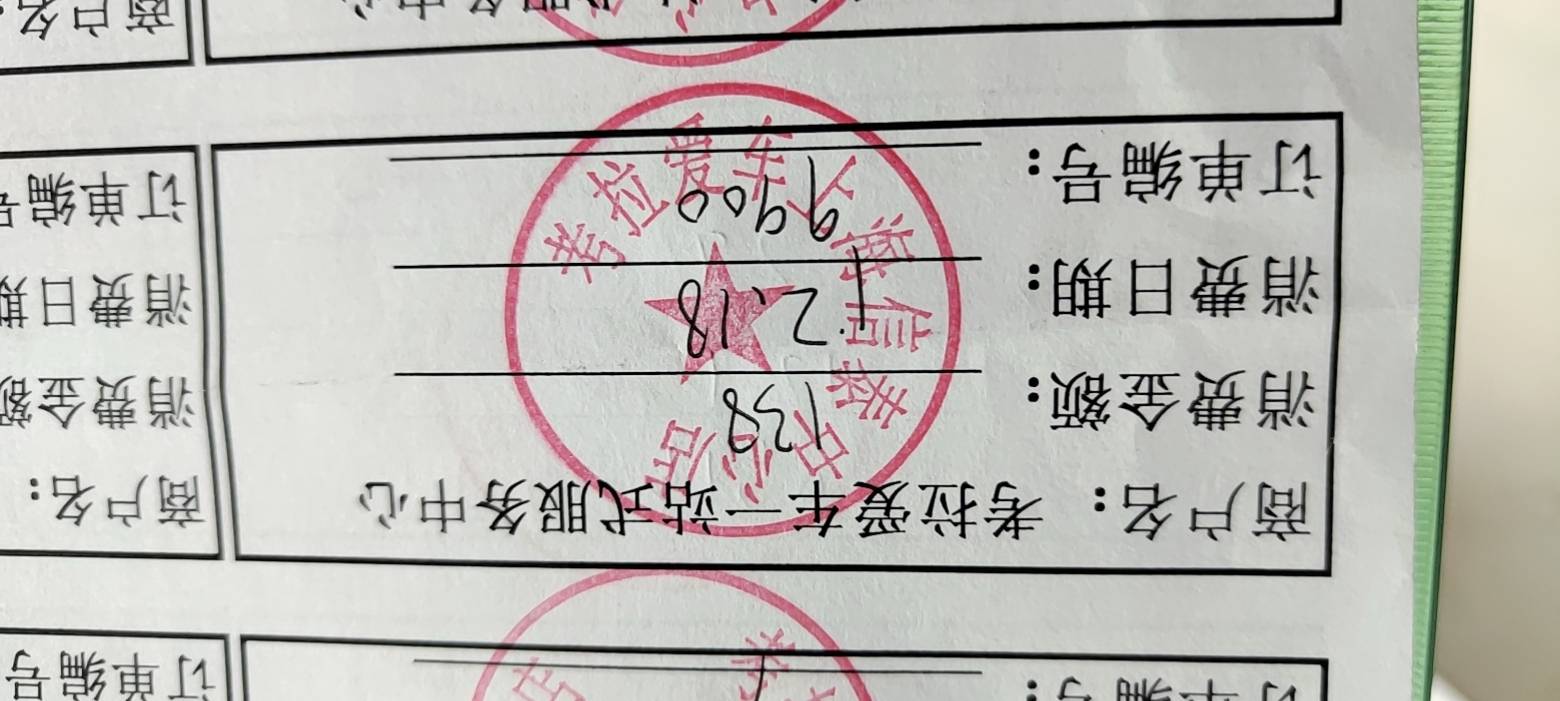 商户名：考拉爱车一站式服务中心
消费金额：138
消费日期：12.18
订单编号：9900
考拉爱车上海信泰
商户名：
消费金额
消费日期
订单编号
订单编号：
订单编号
服务中心
商户名：